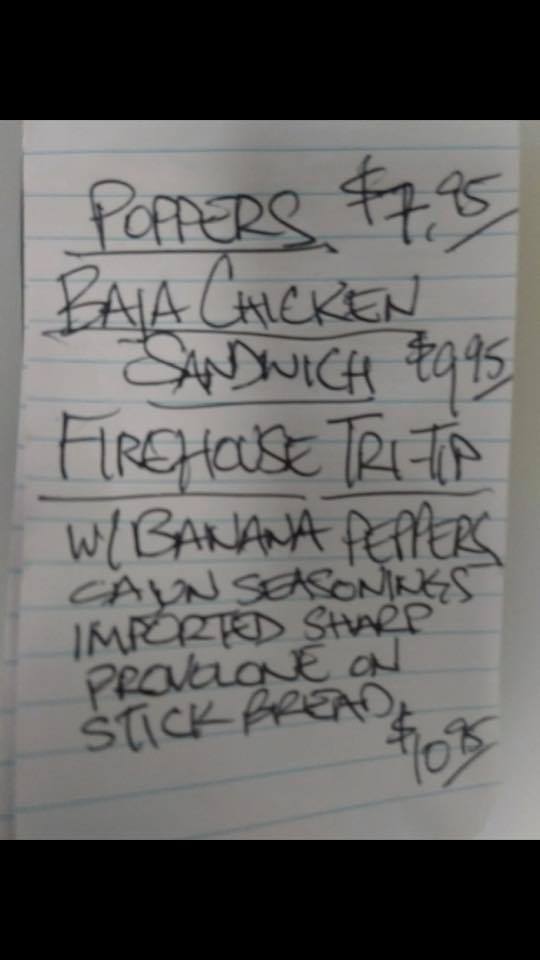 POPPERS $7.95
BAJA CHICKEN
SANDWICH $9.95
FIREHOUSE TRI-TIP
W/ BANANA PEPPERS
CAJUN SEASONINGS
IMPORTED SHARP
PROVOLONE ON
STICK BREAD
$10.95